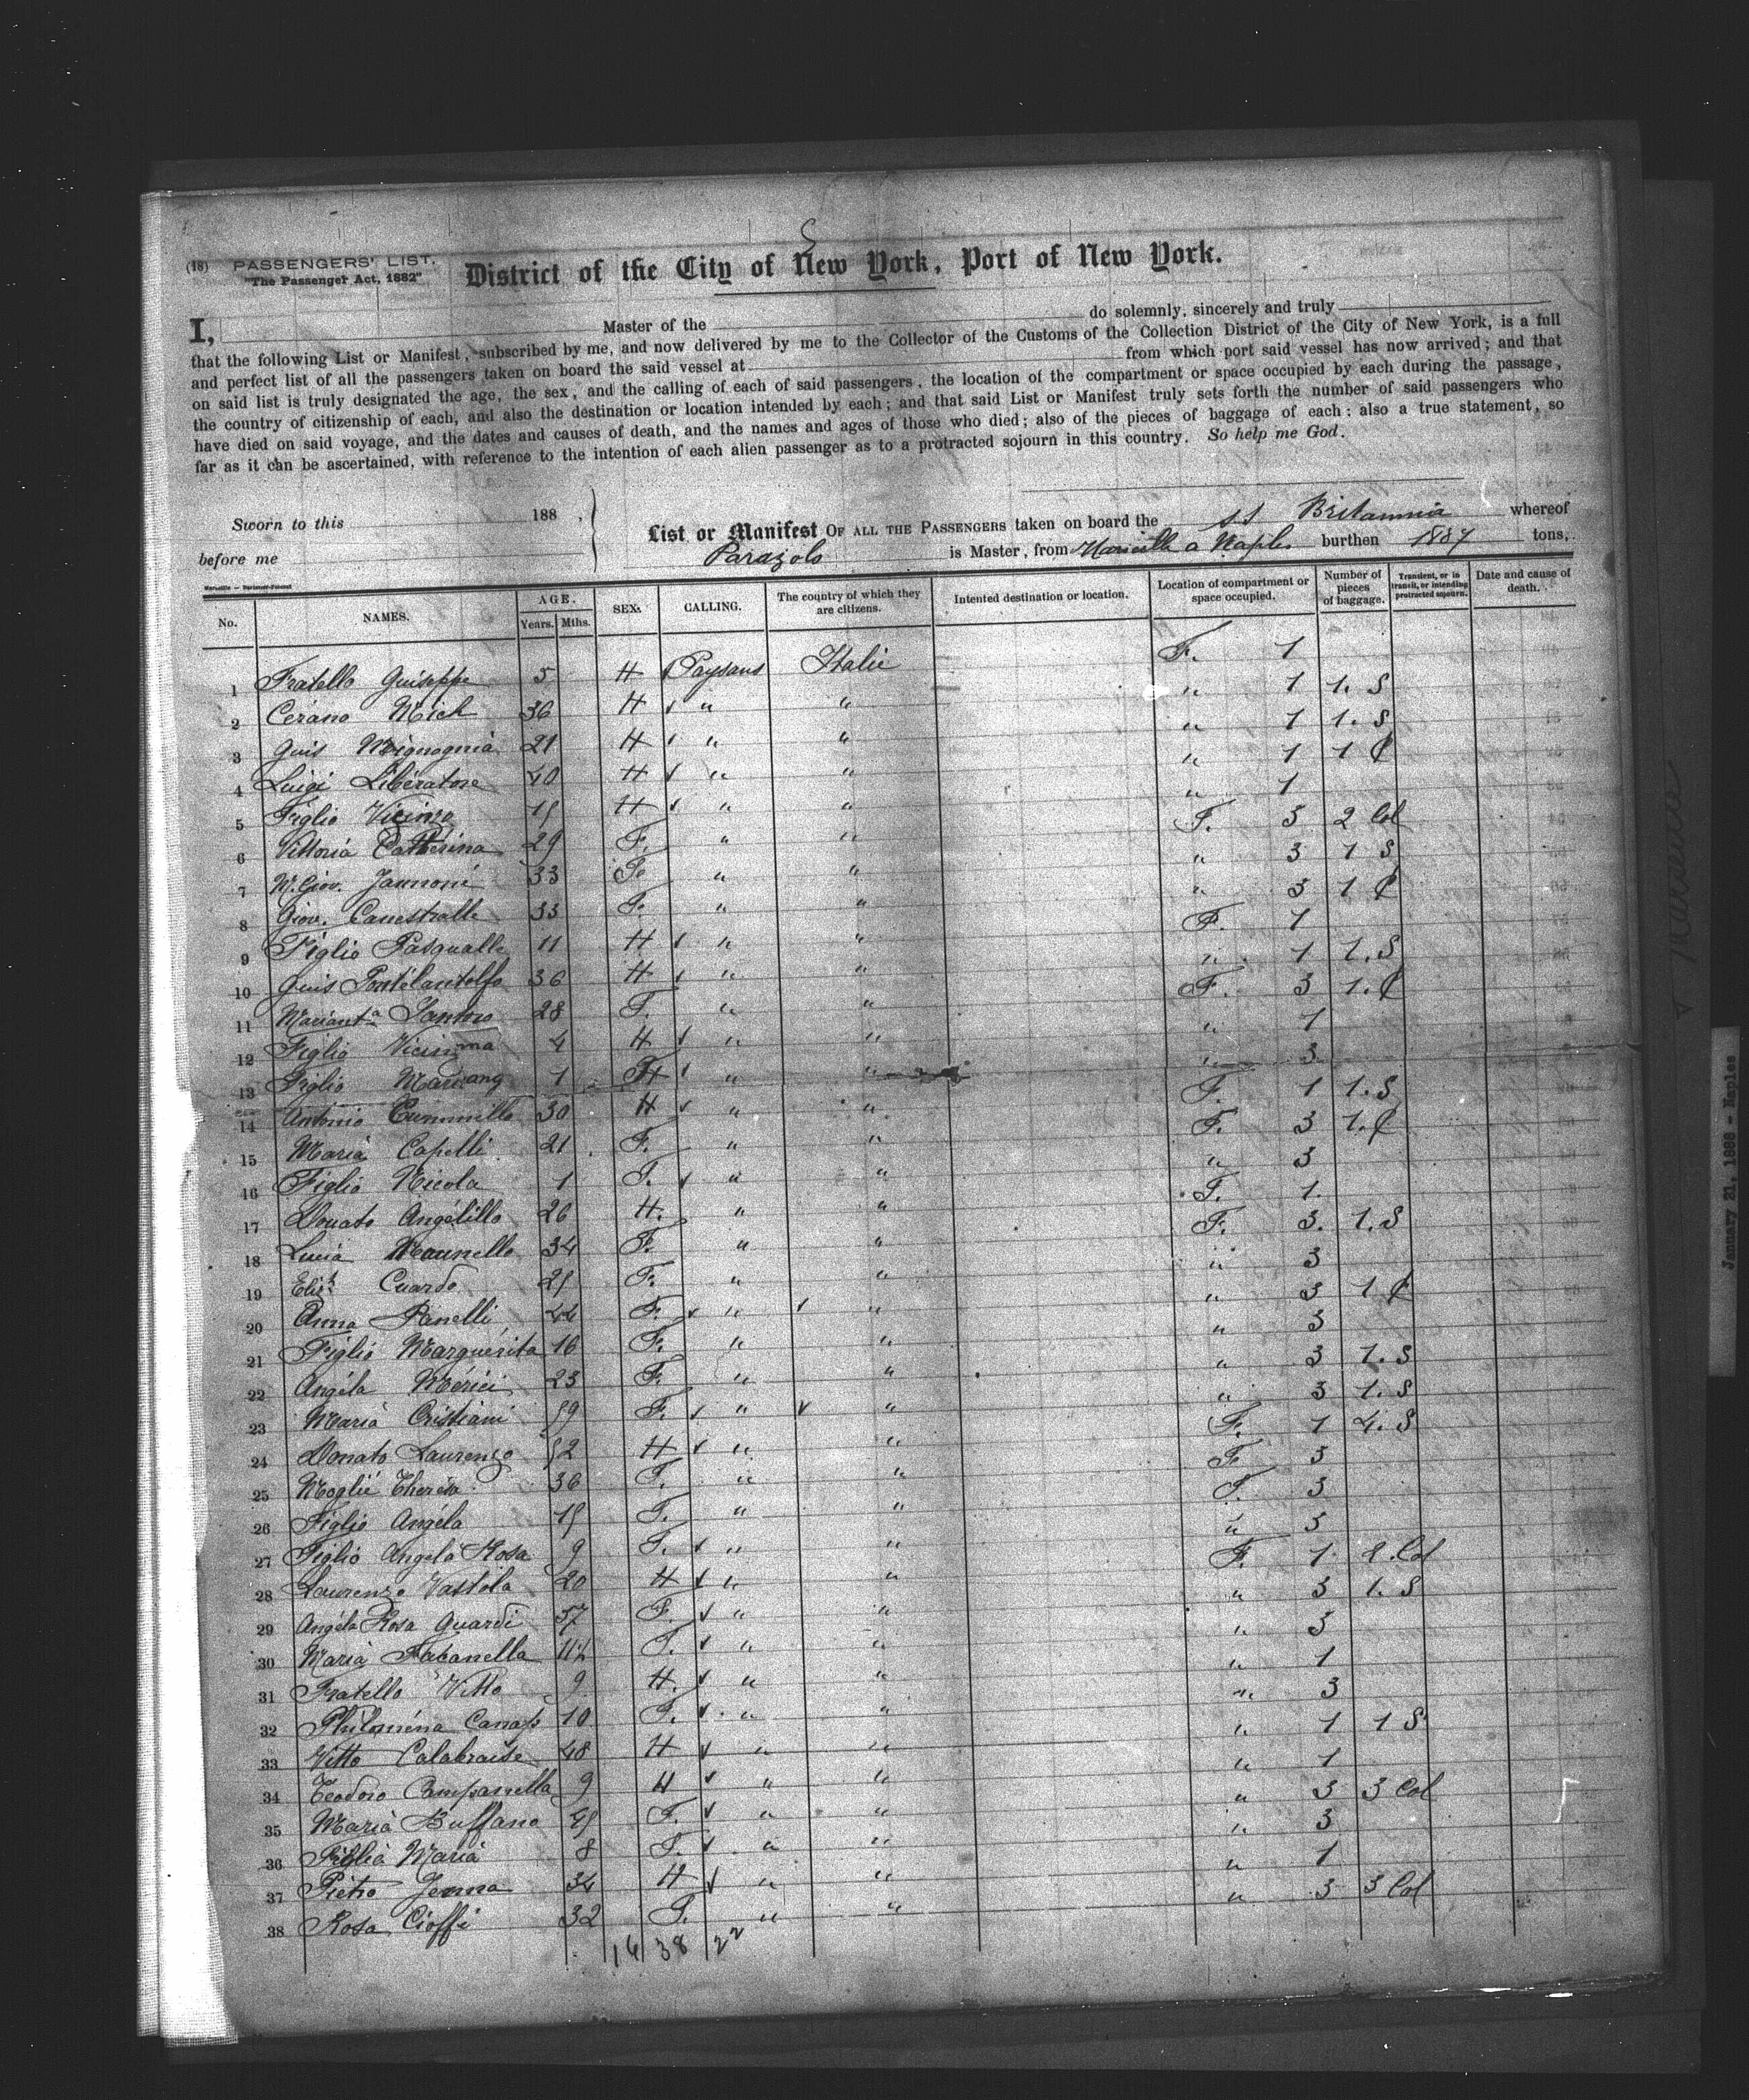 (18) PASSENGERS' LIST.
"The Passenger Act, 1882"
District of the City of New York, Port of New York.
I, Master of the do solemnly, sincerely and truly
that the following List or Manifest, subscribed by me, and now delivered by me to the Collector of the Customs of the Collection District of the City of New York, is a full
and perfect list of all the passengers taken on board the said vessel at from which port said vessel has now arrived; and that
on said list is truly designated the age, the sex, and the calling of each of said passengers, the location of the compartment or space occupied by each during the passage,
the country of citizenship of each, and also the destination or location intended by each; and that said List or Manifest truly sets forth the number of said passengers who
have died on said voyage, and the dates and causes of death, and the names and ages of those who died; also of the pieces of baggage of each: also a true statement, so
far as it can be ascertained, with reference to the intention of each alien passenger as to a protracted sojourn in this country. So help me God.
Sworn to this 188 ,
before me
List or Manifest OF ALL THE PASSENGERS taken on board the SS Britannia whereof
Parazolo is Master, from Marseille a Naples burthen 1887 tons,
No. NAMES. AGE. Years. Mths. SEX. CALLING. The country of which they are citizens. Intented destination or location. Location of compartment or space occupied. Number of pieces of baggage. Transient, or in transit, or intending protracted sojourn. Date and cause of death.
1 Fratello Guiseppe 5 H Paysans Italie F. 1
2 Cerano Mich 36 H " " " 1 1. S
3 Guis Mignognia 21 H " " " 1 1. S
4 Luigi Libératore 40 H " " " 1 1 C
5 Figlio Vicinzo 15 H " " " 1
6 Vittoria Catherina 29 F. " " F. 3 2 Col
7 M. Giov. Jannoni 33 F. " " " 3 1 S
8 Giov. Canestralle 33 F. " " " 3 1 C
9 Figlio Pasqualle 11 H " " F. 1
10 Guis Pontélantolfo 36 H " " " 1 1. S
11 Mariantª Santoro 28 F. " " F. 3 1. C
12 Figlio Vicinzina 4 H " " " 1
13 Figlio Mariang 1 " " " 3
14 Antonio 30 H " " F. 1 1. S
15 Maria Capelli 21 F. " " F. 3 1. C
16 Figlio Nicola 1 F. " " " 3
17 Donato Angélillo 26 H. " " F. 1.
18 Lucia 34 F. " " F. 3. 1. S
19 Elisᵗ Cuardo 25 F. " " " 3
20 Anna Panelli 44 F. " " " 3 1 C
21 Figlio Marguérita 16 F. " " " 3
22 Angéla Mérici 23 F. " " " 3 1. S
23 Maria Cristiani 59 F. " " " 3 1. S
24 Donato Laurenzo 52 H " " F. 1 4. S
25 Moglié Thérésa 36 F. " " F 3
26 Figlio Angéla 15 F. " " F. 3
27 Figlio Angela Rosa 9 F. " " " 3
28 Laurenzo Vastola 20 H " " F. 1. Col
29 Angéla Rosa Guardi 37 F. " " " 3 1. S
30 Maria F. " " " 3
31 Fratello Vitto 9 H. " " " 1
32 Philoména Canap 10 F. " " " 3
33 Vitto Calabraise 48 H " " " 1 1 S
34 Teodoro Campanella 9 H " " " 1
35 Maria Buffano 45 F. " " " 3 3 Col
36 Figlia Maria 8 F. " " " 3
37 Pietro Jenna 34 H " " " 1
38 Rosa Cioffi 32 F. " " " 3 3 Col
16 38 22
Marseille
January 21, 1888 - Naples